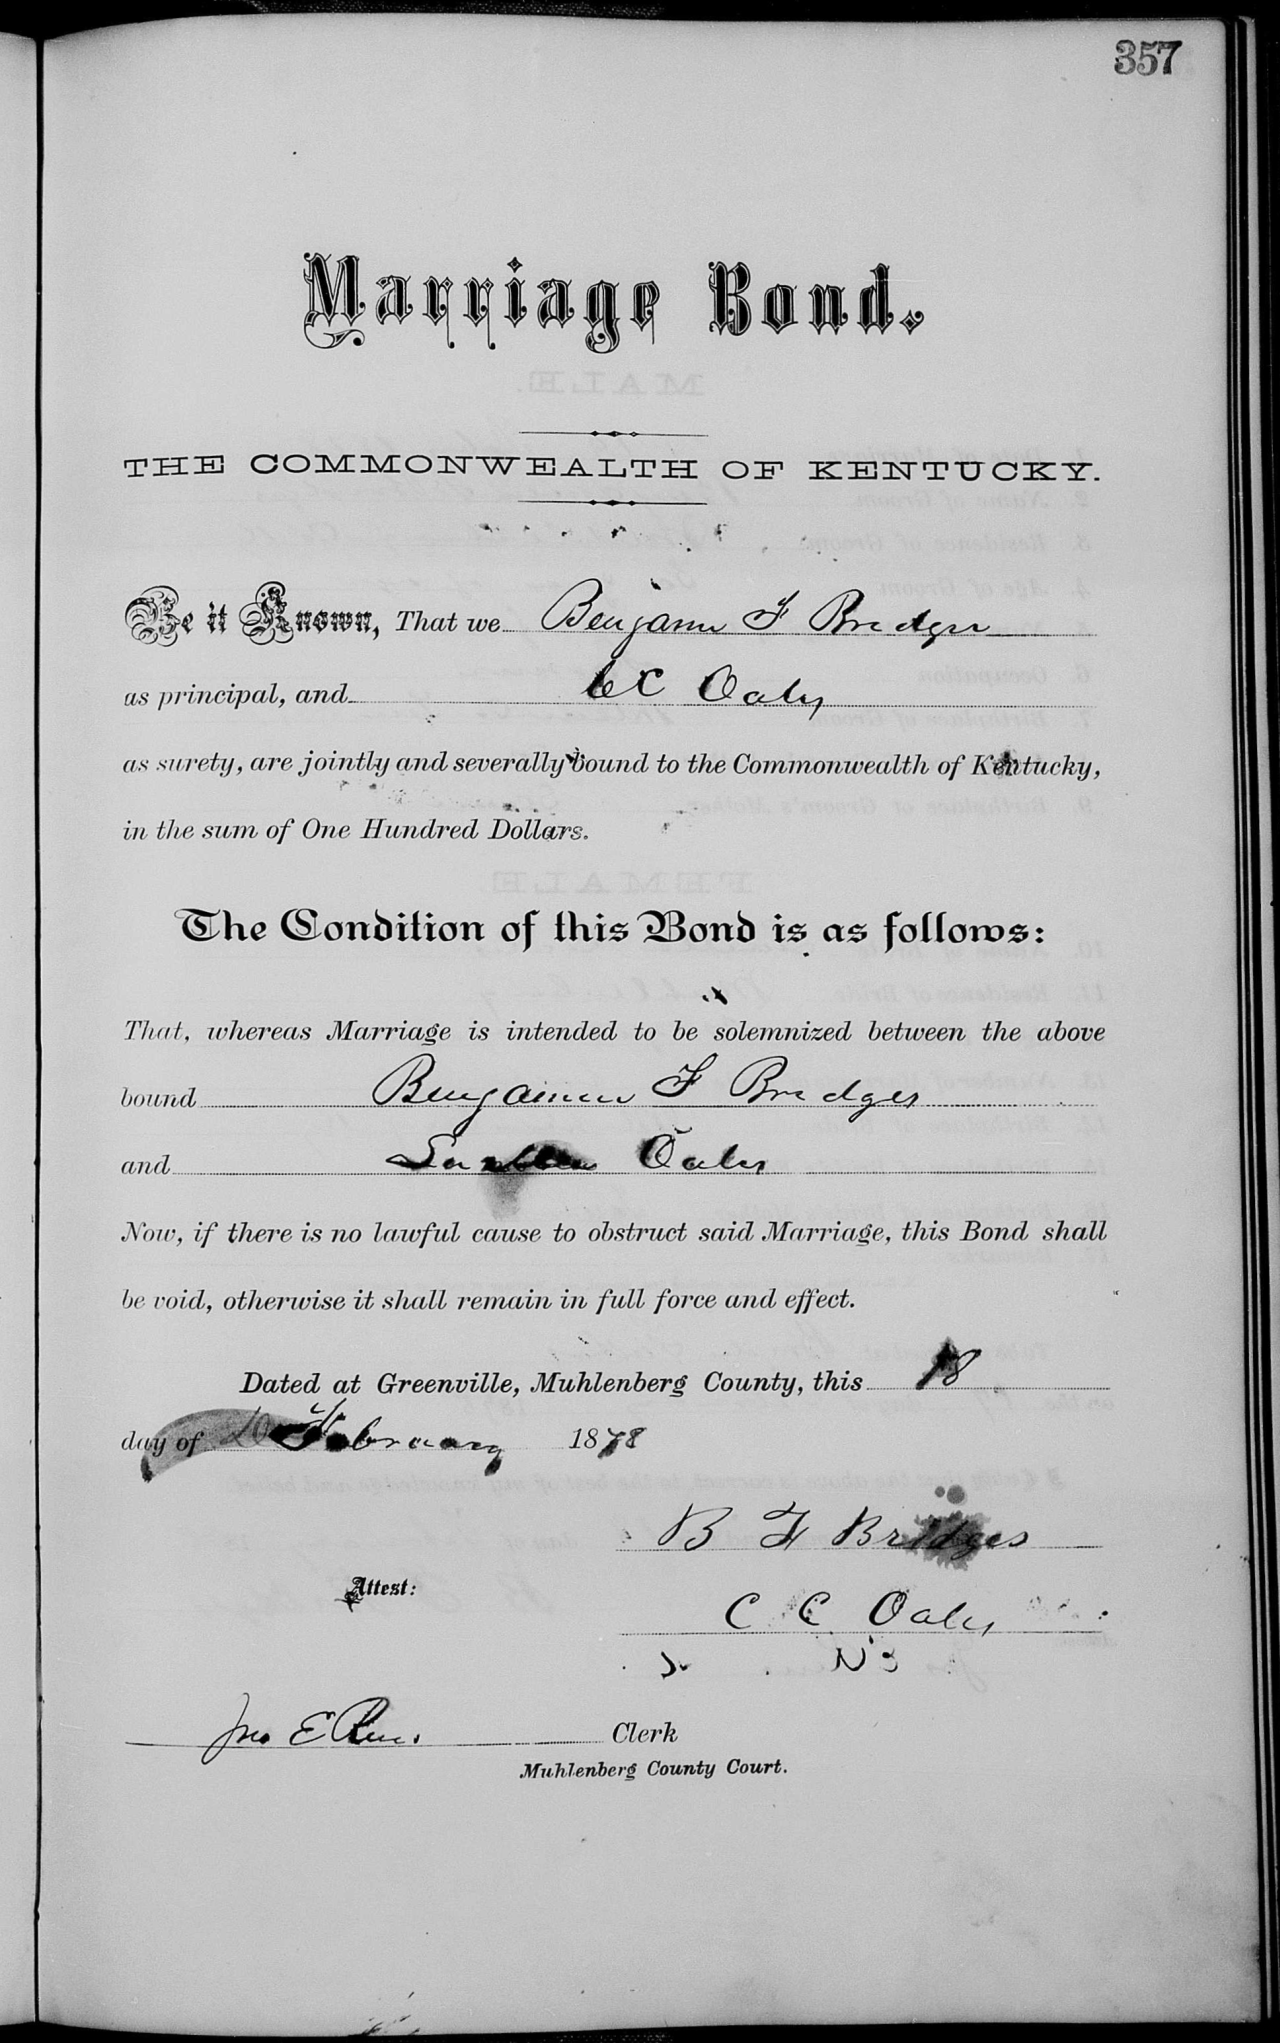 357
Marriage Bond.
THE COMMONWEALTH OF KENTUCKY.
Be it Known, That we Benjamin F Bridges
as principal, and C C Oates
as surety, are jointly and severally bound to the Commonwealth of Kentucky,
in the sum of One Hundred Dollars.
The Condition of this Bond is as follows:
That, whereas Marriage is intended to be solemnized between the above
bound Benjamin F Bridges
and Oates
Now, if there is no lawful cause to obstruct said Marriage, this Bond shall
be void, otherwise it shall remain in full force and effect.
Dated at Greenville, Muhlenberg County, this 18
day of February 1878
B F Bridges
Attest:
C C Oates
Jno E Clerk
Muhlenberg County Court.